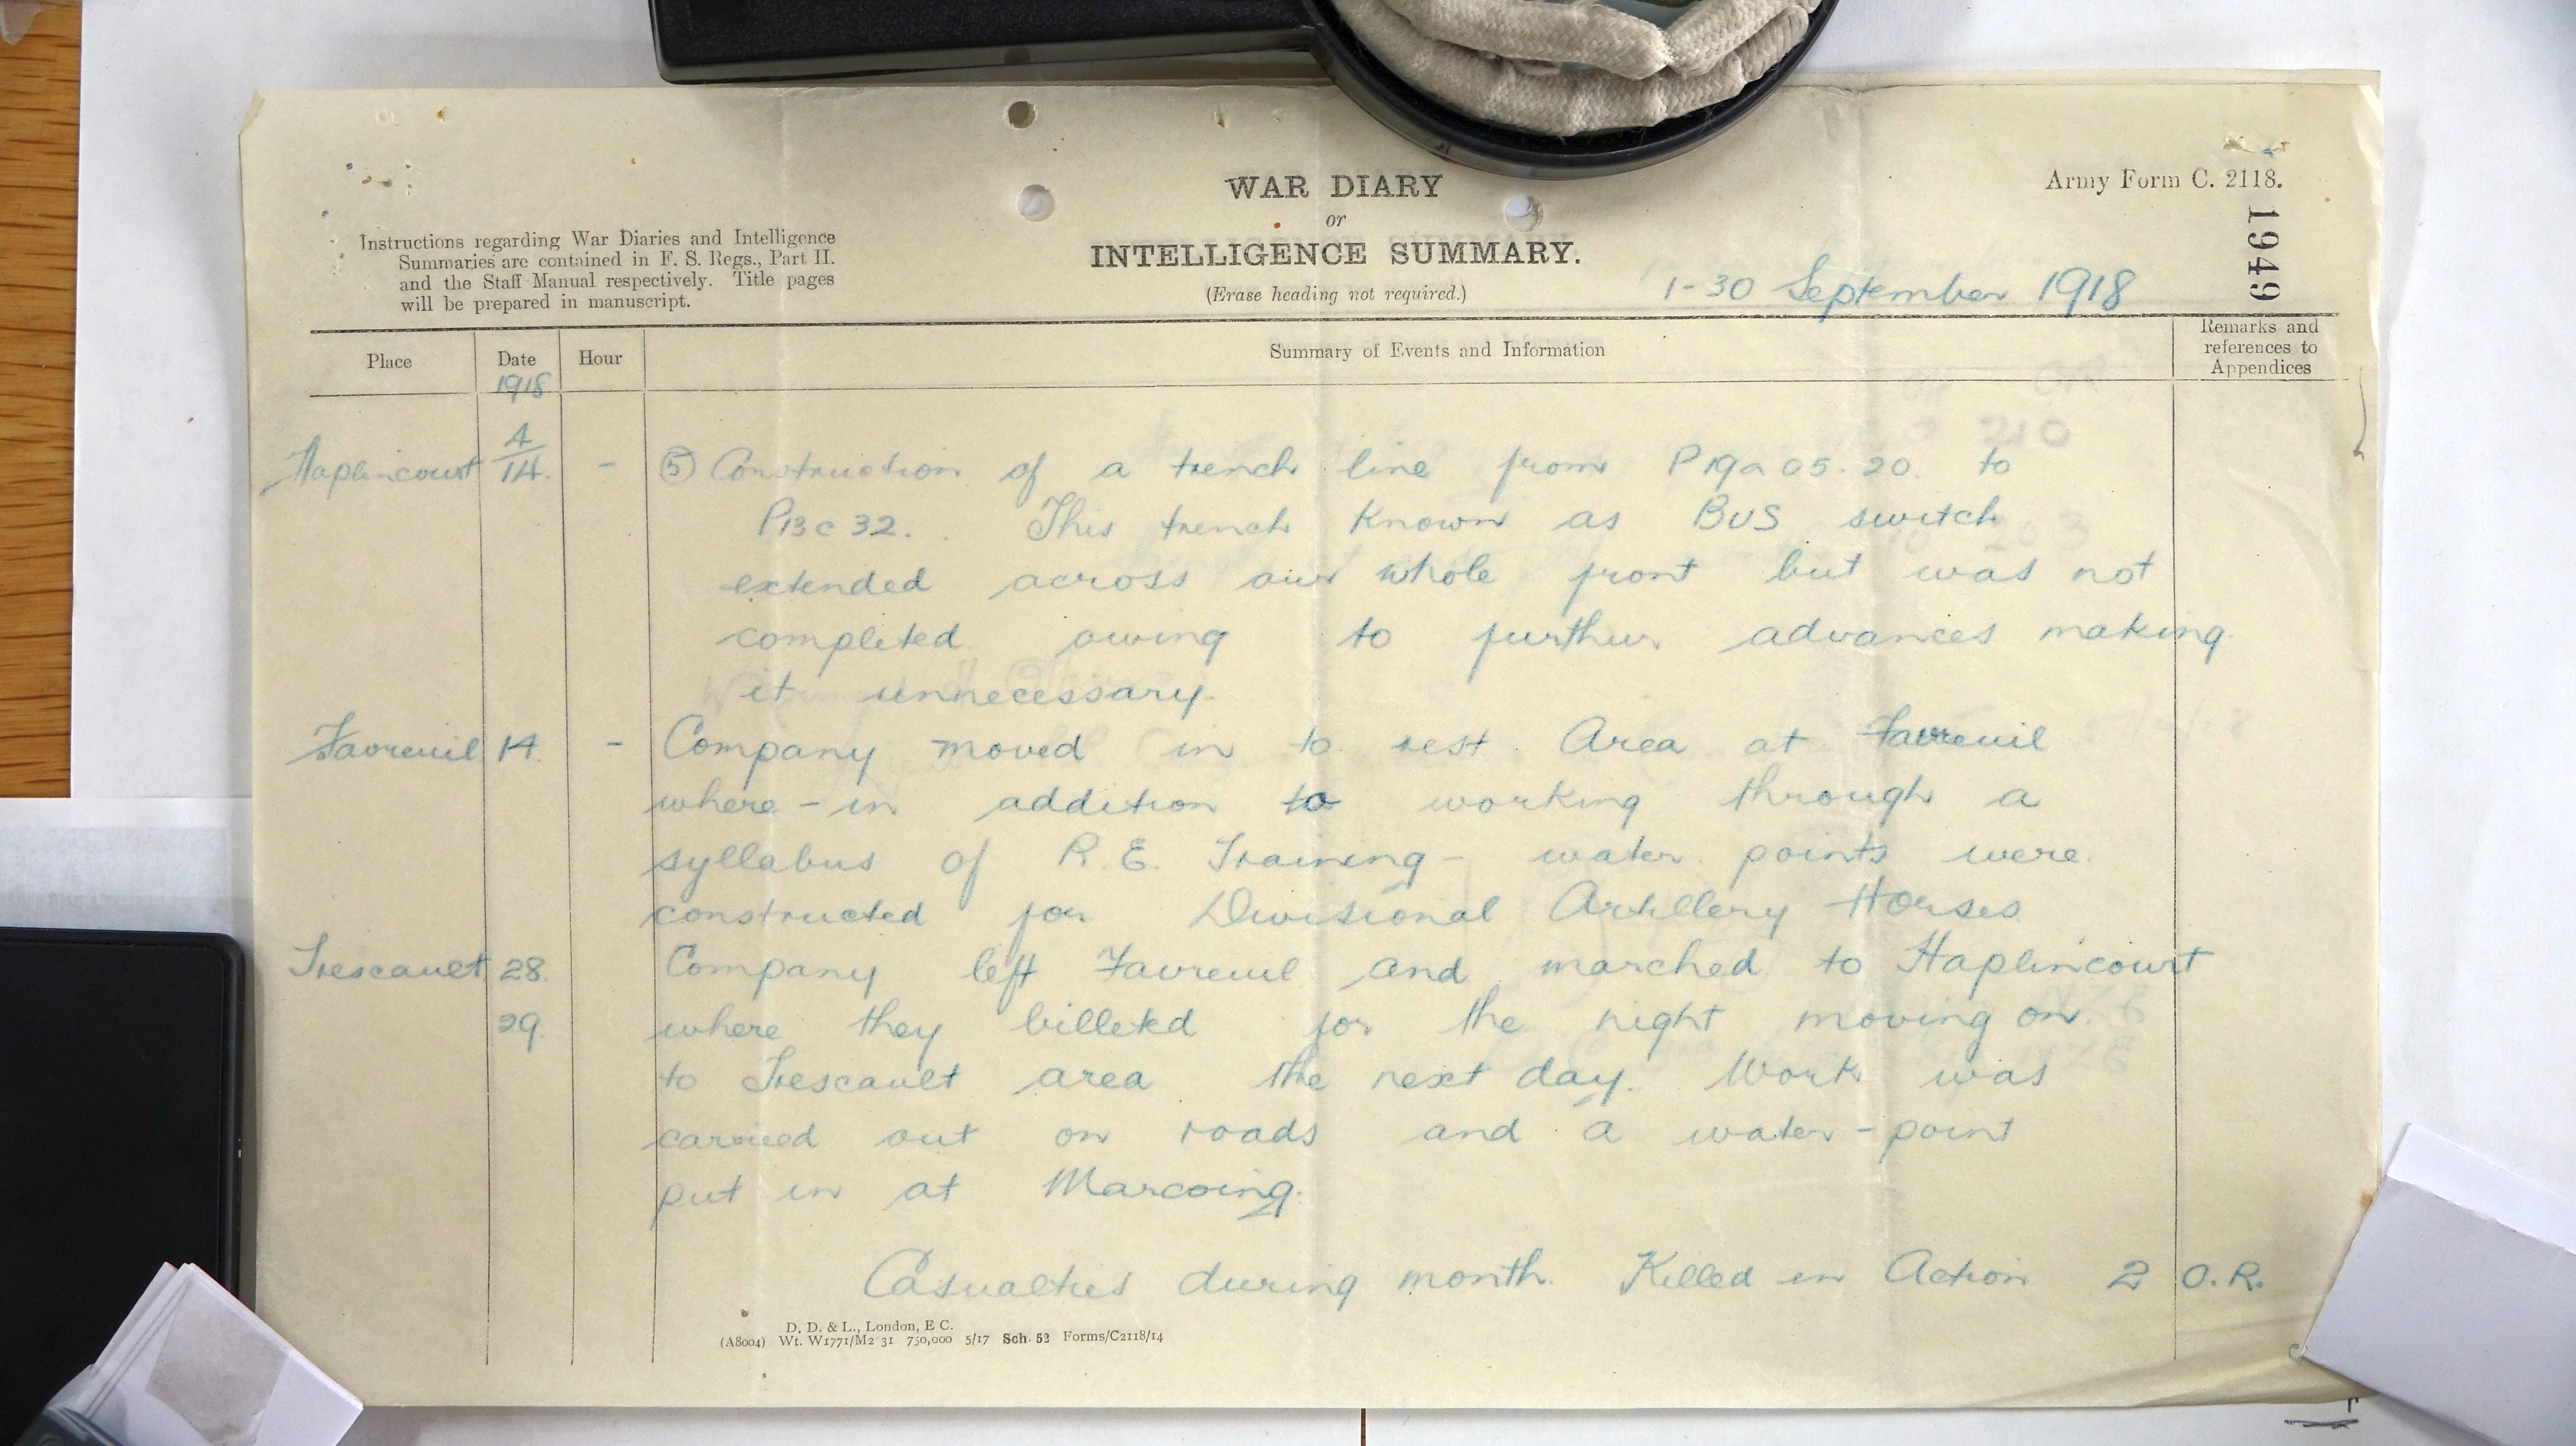 WAR DIARY
or
INTELLIGENCE SUMMARY.
(Erase heading not required.)
Army Form C. 2118.
1949
Instructions regarding War Diaries and Intelligence
Summaries are contained in F. S. Regs., Part II.
and the Staff Manual respectively. Title pages
will be prepared in manuscript.
1-30 September 1918
Place
Date
1918
Hour
Summary of Events and Information
Remarks and
references to
Appendices
Haplincourt 4/14. - (5) Construction of a trench line from P19a 05.20. to
P13c 32. . This trench known as BUS switch
extended across our whole front but was not
completed owing to further advances making
it unnecessary.
Favreuil 14. - Company moved in to rest Area at Favreuil
where - in addition to working through a
syllabus of R.E. Training - water points were
constructed for Divisional Artillery Horses
Trescault 28. Company left Favreuil and marched to Haplincourt
29. where they billeted for the night moving on
to Trescault area the next day. Work was
carried out on roads and a water-point
put in at Marcoing.
Casualties during month. Killed in Action 2 O.R.
D. D. & L., London, E C.
(A8004) Wt. W1771/M2 31 750,000 5/17 Sch. 52 Forms/C2118/14